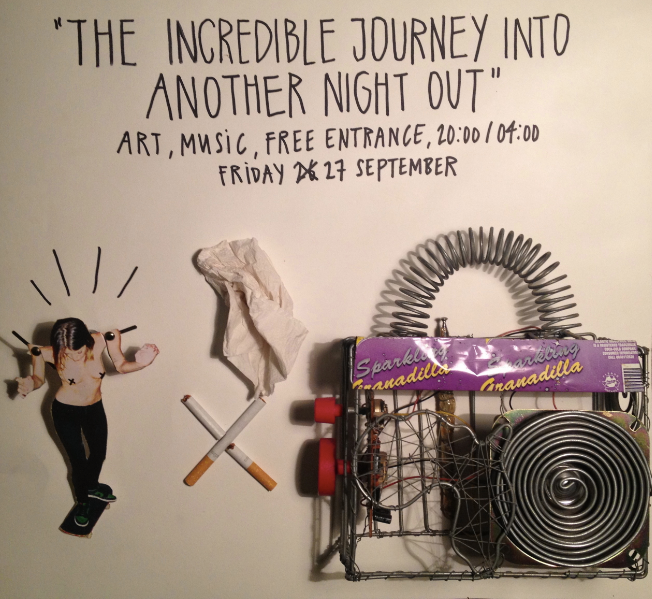 "THE INCREDIBLE JOURNEY INTO
ANOTHER NIGHT OUT"
ART, MUSIC, FREE ENTRANCE, 20:00/04:00
FRIDAY 26 27 SEPTEMBER
Sparkling Sparkling
Granadilla Granadilla